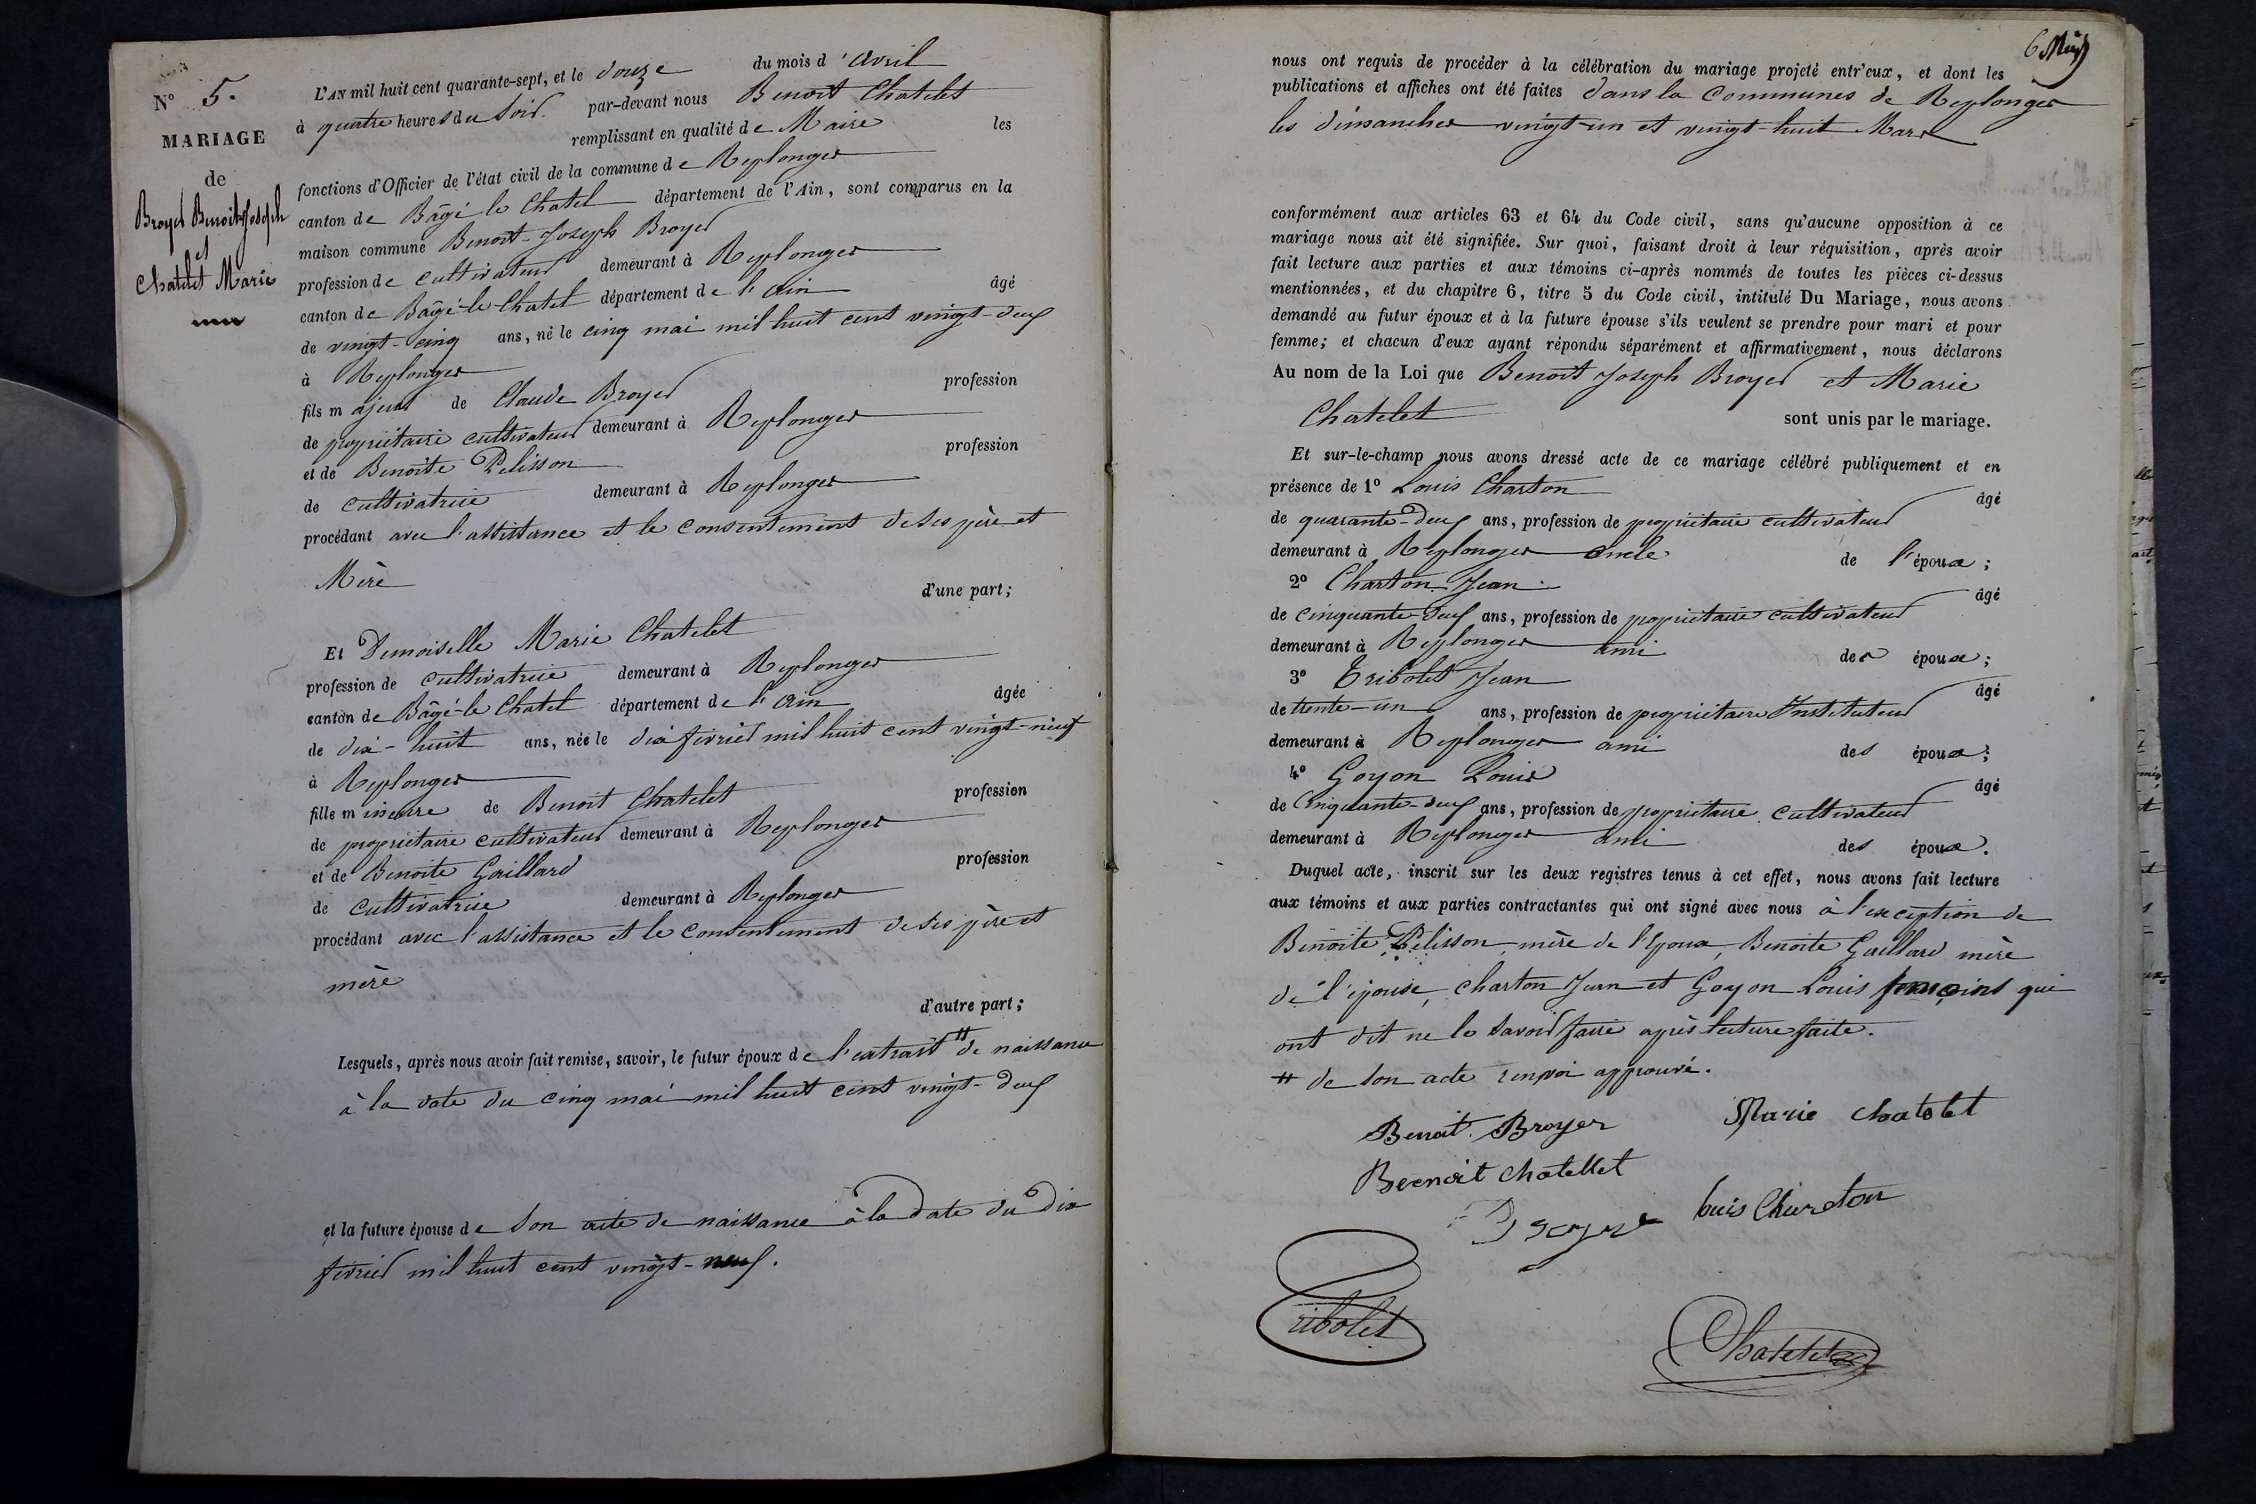 N° 5.
MARIAGE
de
Broyer Benoit Joseph
et
Chatelet Marie
L'AN mil huit cent quarante-sept, et le douze du mois d'avril
à quatre heures du soir. par-devant nous Benoit Chatelet
remplissant en qualité de Maire les
fonctions d'Officier de l'état civil de la commune de Replonges
canton de Bâgé le Chatel département de l'Ain, sont comparus en la
maison commune Benoit-Joseph Broyer
profession de cultivateur demeurant à Replonges
canton de Bâgé-le-Chatel département de l'ain âgé
de vingt-cinq ans, né le cinq mai mil huit cent vingt-deux
à Replonges
fils majeur de Claude Broyer profession
de propriétaire cultivateur demeurant à Replonges
et de Benoite Pelisson profession
de cultivatrice demeurant à Replonges
procédant avec l'assistance et le consentement de ses père et
Mère
d'une part;
Et Demoiselle Marie Chatelet
profession de cultivatrice demeurant à Replonges
canton de Bâgé-le Chatel département de l'ain âgée
de dix-huit ans, née le dix février mil huit cent vingt-neuf
à Replonges
fille mineure de Benoit Chatelet profession
de propriétaire cultivateur demeurant à Replonges
et de Benoite Gaillard profession
de cultivatrice demeurant à Replonges
procédant avec l'assistance et le consentement de ses père et
mère
d'autre part;
Lesquels, après nous avoir fait remise, savoir, le futur époux de l'extrait # de naissance
à la date du cinq mai mil huit cent vingt-deux
et la future épouse de son acte de naissance à la date du dix
février mil huit cent vingt-neuf.
6
nous ont requis de procéder à la célébration du mariage projeté entr'eux, et dont les
publications et affiches ont été faites dans la Communes de Replonges
les dimanches vingt-un et vingt-huit Mars
conformément aux articles 63 et 64 du Code civil, sans qu'aucune opposition à ce
mariage nous ait été signifiée. Sur quoi, faisant droit à leur réquisition, après avoir
fait lecture aux parties et aux témoins ci-après nommés de toutes les pièces ci-dessus
mentionnées, et du chapitre 6, titre 5 du Code civil, intitulé Du Mariage, nous avons
demandé au futur époux et à la future épouse s'ils veulent se prendre pour mari et pour
femme; et chacun d'eux ayant répondu séparément et affirmativement, nous déclarons
Au nom de la Loi que Benoit Joseph Broyer et Marie
Chatelet sont unis par le mariage.
Et sur-le-champ nous avons dressé acte de ce mariage célébré publiquement et en
présence de 1° Louis Charton âgé
de quarante-deux ans, profession de propriétaire cultivateur
demeurant à Replonges oncle de l'époux;
2° Charton Jean âgé
de cinquante-deux ans, profession de propriétaire cultivateur
demeurant à Replonges ami des époux;
3° Tribolet Jean âgé
de trente-un ans, profession de propriétaire Instituteur
demeurant à Replonges ami des époux;
4° Goyon Louis âgé
de Cinquante-deux ans, profession de propriétaire cultivateur
demeurant à Replonges ami des époux.
Duquel acte, inscrit sur les deux registres tenus à cet effet, nous avons fait lecture
aux témoins et aux parties contractantes qui ont signé avec nous à l'exception de
Benoite Pelisson mère de l'époux, Benoite Gaillard mère
de l'épouse, Charton Jean et Goyon Louis témoins qui
ont dit ne le savoir faire après lecture faite.
# de son acte renvoi approuvé.
Benoit Broyer Marie Chatelet
Benoit Chatellet
Louis Charton
Tribolet
Chatelet